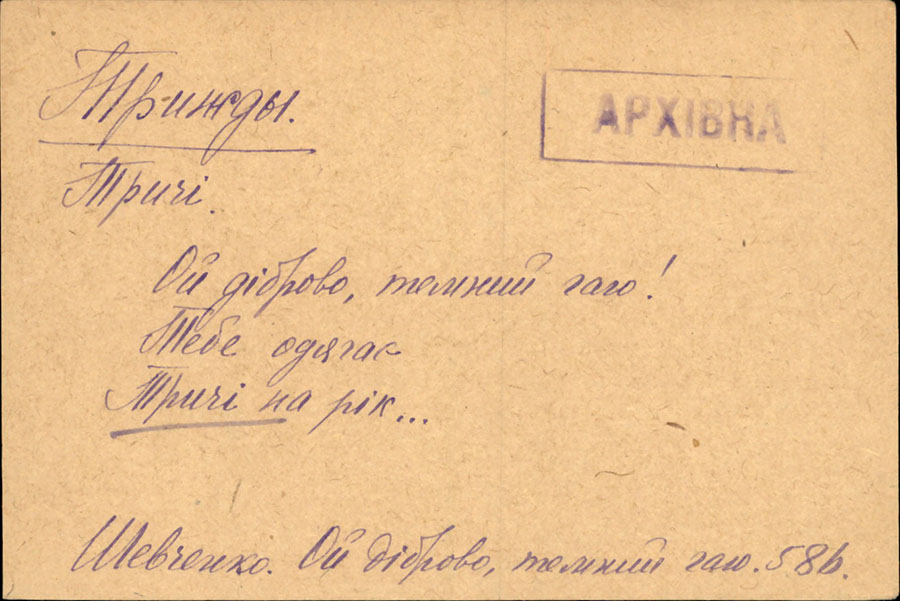 Трижды.
АРХІВНА
Тричі.
Ой діброво, темний гаю!
Тебе одягає
Тричі на рік...
Шевченко. Ой діброво, темний гаю. 586.